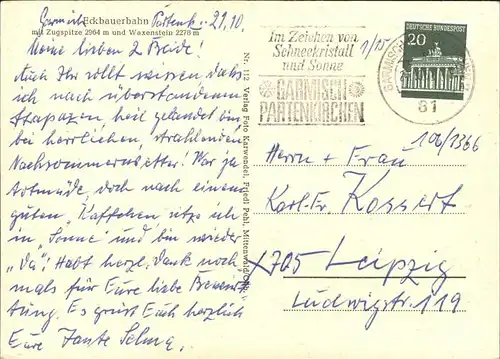 Garmisch Eckbauerbahn Partenk., 21.10.
mit Zugspitze 2964 m und Waxenstein 2278 m
Meine lieben 2 Beide!
Auch Ihr sollt wissen daß
ich nach überstandenen
Strapazen heil gelandet bin
bei herrlichen, strahlenden
Nachsommerwetter! War zwar
totmüde, doch nach einem
guten Kaffchen sitze ich
in "Sonne" und bin wieder
"Da"; Habt herzl. Dank noch
mals für Eure liebe Bewir
tung. Es grüßt Euch herzlich
Eure Tante Selma.
Nr. 112 Verlag Foto Karwendel, Friedl Pehl, Mittenwald/Obb.
Im Zeichen von
Schneekristall
und Sonne
GARMISCH-
PARTENKIRCHEN
DEUTSCHE BUNDESPOST
20
81
106/1366
Herrn + Frau
Karl-Fr. Kossert
X705 Leipzig
Ludwigstr. 119